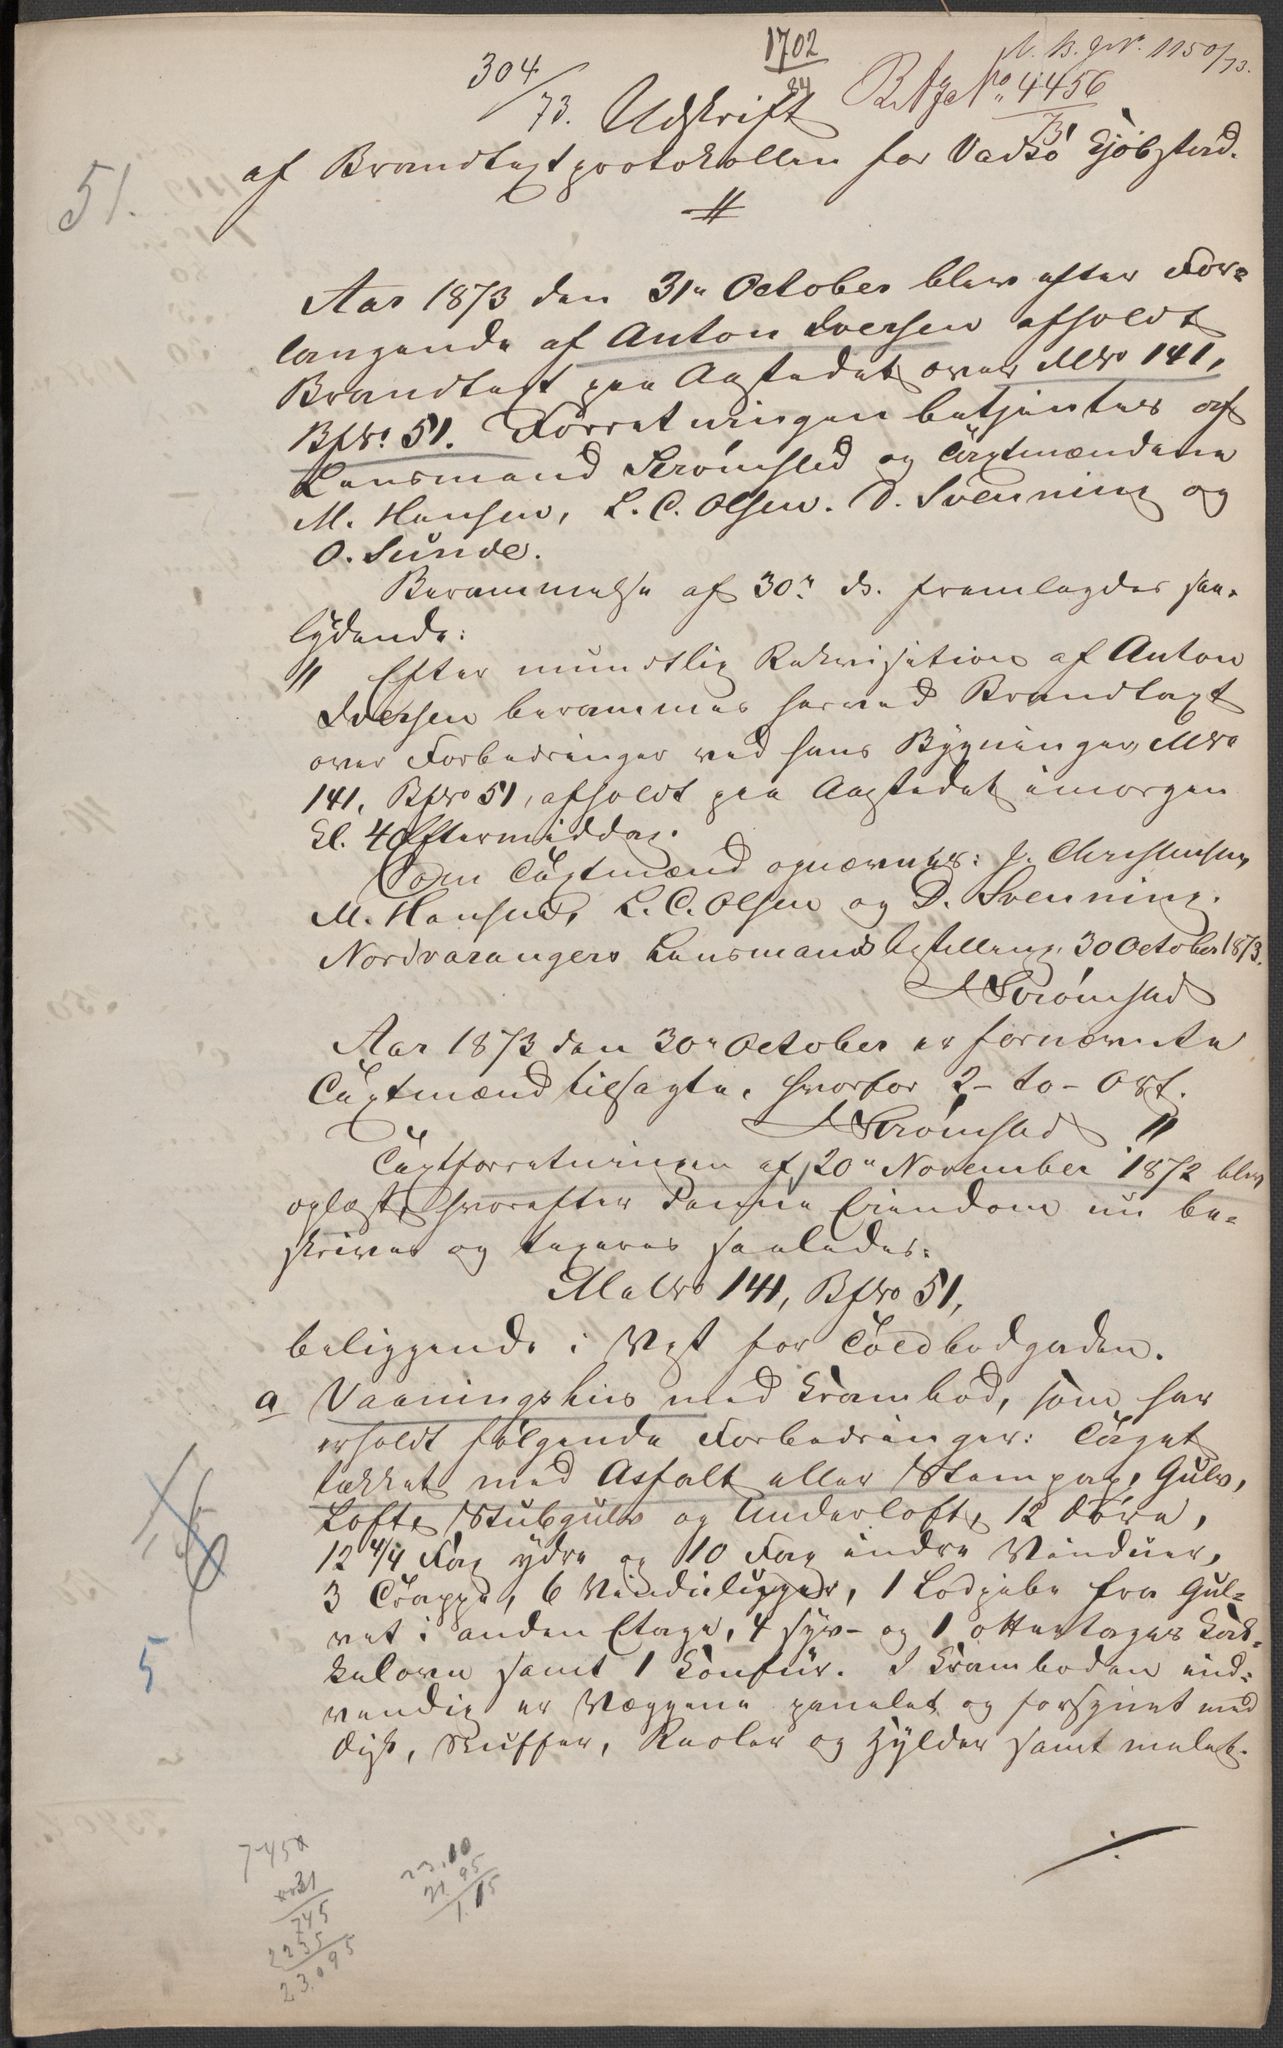 1702
84
304/73.
51.
Udskrift
af Brandtaxtprotokollen for Vadsö Kjöbstad.
Aar 1873 den 31te October blev efter For-
langende af Anton Iversen afholdt
Brandtaxt paa Aastedet over MNo 141,
BfNo 51. Forretningen betjentes af
Lensmand Strömsted og Taxtmændene
M. Hansen, L. C. Olsen. D. Svenning og
O. Sunde.
Berammelse af 30te ds. fremlagdes saa-
lydende:
" Efter mundtlig Rekvisition af Anton
Iversen berammes herved Brandtaxt
over Forbedringer ved hans Bygninger, MNo
141, BfNo 51, afholdt paa Aastedet imorgen
Kl. 4 Eftermiddag.
Som Taxtmænd opnævnes: J. Christensen,
M. Hansen, L. C. Olsen og D. Svenning.
Nordvarangers Lensmandsbestilling, 30 October 1873.
Strömsted
Aar 1873 den 30te October er fornævnte
Taxtmænd tilsagte, hvorfor 2 - to - Ort.
Strömsted "
Taxtforretningen af 20de November 1872 blev
oplæst, hvorefter denne Eiendom nu be-
skrives og taxeres saaledes:
MatNo 141, BfNo 51,
beliggende i Vest for Toldbodgaden.
a Vaaningshus med Krambod, som har
erholdt følgende Forbedringer: Taget
tækket med Asfalt eller Stenpap, Gulv,
Loft, Stubgulv og Underloft, 12 Døre,
12 4/4 Fag ydre og 10 Fag indre Vinduer,
3 Trappe, 6 Vindueligger, 1 Lodpibe fra Gul-
vet i anden Etage, 4 syv- og 1 otteetages Kak-
kelovn samt 1 Komfür. I Kramboden ind-
vendig er Væggene panelet og forsynet med
Disk, Skuffer, Reoler og Hylder samt malet.
5
745
2235
23.095
23.10
21.95
1.15